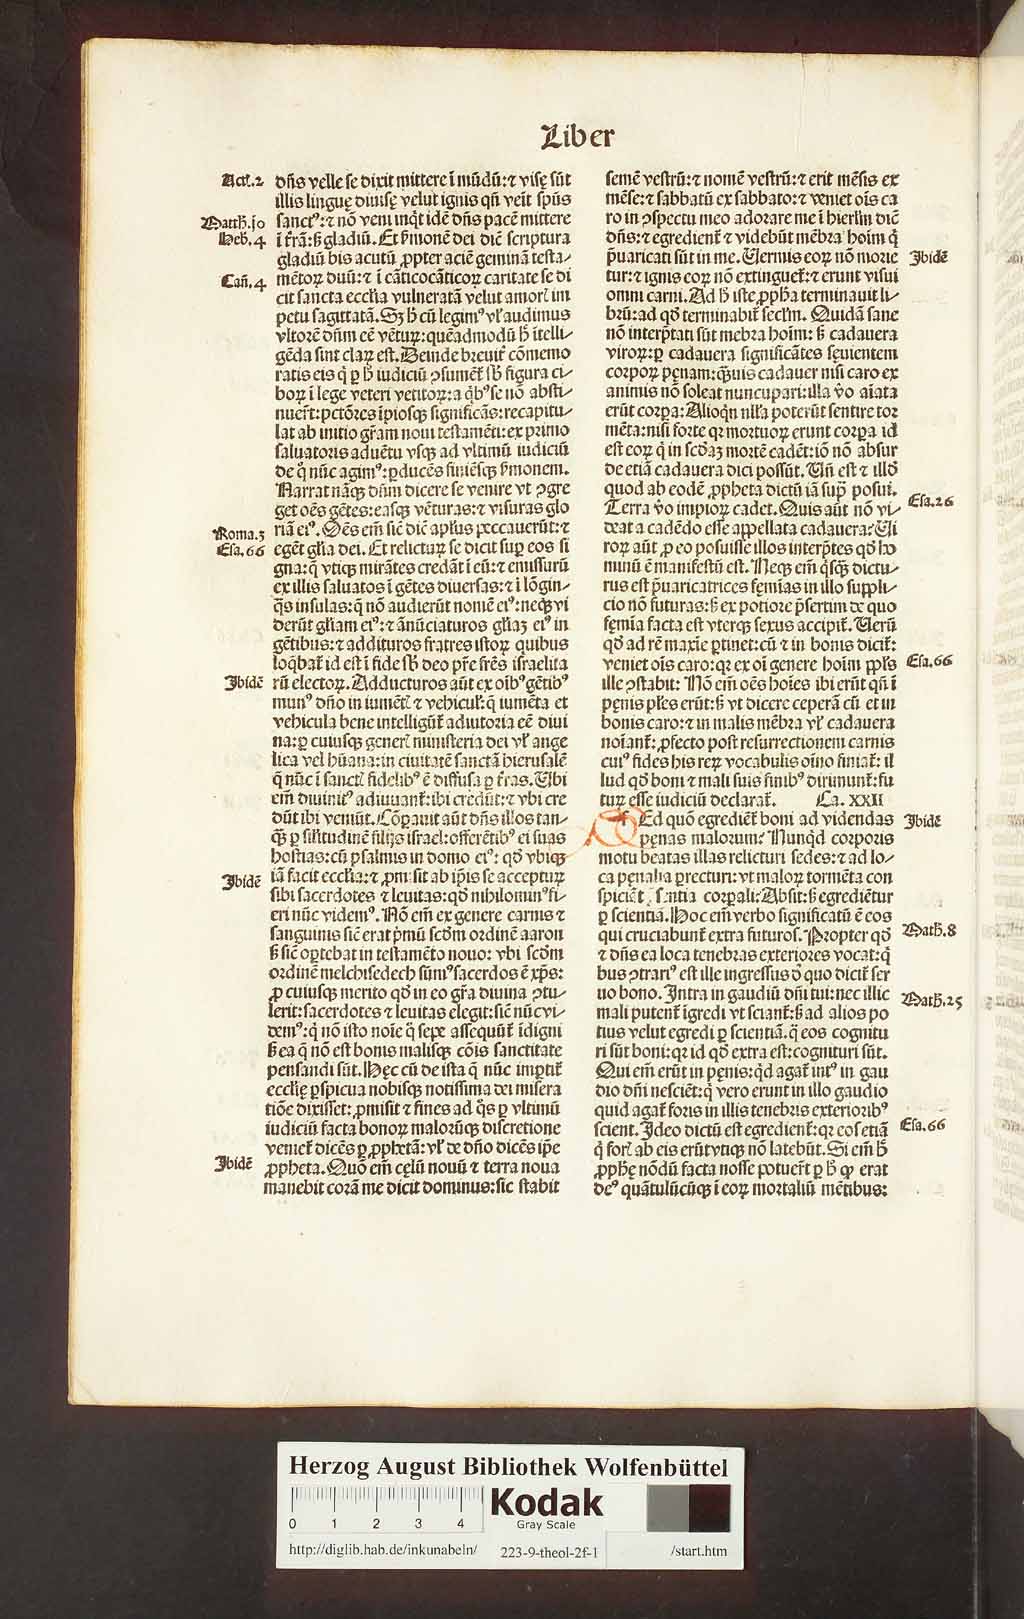 Liber
Act.2
dñs velle se dixit mittere ĩ mũdũ:⁊ visę sũt
illis linguę diuisę velut ignis qñ veĩt spũs
Matth.jo
sanctꝰ:⁊ nõ veni inqͥt idẽ dñs pacẽ mittere
Heb.4
ĩ t̃rã:ß gladiũ. Et ẜmonẽ dei diẽ scriptura
gladiũ bis acutũ ꝓpter aciẽ geminã testa⸗
Cañ.4
mẽtoꝝ duũ:⁊ ĩ cãticocãticoꝝ caritate se di
cit sancta eccłia vulneratã velut amorͭ im
petu sagittatã. Sꝫ ħ cũ legimꝰ vł audimus
vltorẽ dñm eẽ vẽtuꝝ:quẽadmodũ ħ ĩtelli⸗
gẽda sint claꝝ est. Deinde breuit̃ cõmemo
ratis eis q̃ ꝑ ħ iudiciũ ꝯsumẽt̃ sß figura ci⸗
boꝝ ĩ lege veteri vetitoꝝ:a qͥbꝰse nõ absti⸗
nuer̃t:pctõres ĩpiosqꝫ significãs:recapitu⸗
lat ab initio gr̃am noui testamẽti:ex primo
saluatoris aduẽtu vsqꝫ ad vltimũ iudiciũ
de q̊ nũc agimꝰ:ꝑducẽs finiẽsqꝫ ẜmonem.
Narrat nãqꝫ dñm dicere se venire vt ꝯgre
get oẽs gẽtes:easqꝫ vẽturas:⁊ visuras glo
riã eiꝰ. Oẽs em̃ siẽ diẽ apłus peccauerũt:⁊
Roma.3
egẽt głia dei. Et relictuꝝ se dicit suꝑ eos si
Esa.66
gna:q̃ vtiqꝫ mirãtes credãt ĩ eũ:⁊ emissurũ
ex illis saluatos ĩ gẽtes diuersas:⁊ ĩ lõgin⸗
qͣs insulas:q̃ nõ audierũt nomẽ eiꝰ:neqꝫ vi
derũt głiam eiꝰ:⁊ ãnũciaturos głiaꝫ eiꝰ in
gẽtibus:⁊ addituros fratres istoꝝ quibus
loqͣbat̃ id est ĩ fide sß deo pr̃e fr̃es israelita
rũ electoꝝ. Adducturos aũt ex oĩbꝰ gẽtibꝰ
Ibidẽ
munꝰ dño in iumẽtͭ ⁊ vehicułͭ:q̃ iumẽta et
vehicula bene intelligũt̃ adiutoria eẽ diui
na:ꝑ cuiusqꝫ generͭ ministeria dei vł ange
lica vel hũana:in ciuitatẽ sanctã hierusalẽ
q̃ nũc ĩ sanctͭ fidelibꝰ ẽ diffusa ꝑ t̃ras. Vbi
em̃ diuinitꝰ adiuuant̃:ibi credũt:⁊ vbi cre
dũt ibi veniũt. Cõparauit aũt dñs illos tan⸗
qͣꝫ ꝑ siłitudinẽ filijs israel:offerẽtibꝰ ei suas
hostias:cũ psalmis in domo eiꝰ: qđ vbiqꝫ
iã facit eccłia:⁊ ꝓmisit ab ip̃is se accepturꝝ
Ibidẽ
sibi sacerdotes ⁊ leuitas:qđ nihilominꝰfi⸗
eri nũc videmꝰ. Nõ em̃ ex genere carnis ⁊
sanguinis siẽ erat pͥmũ scđm ordinẽ aaron
ß siẽ oꝑtebat in testamẽto nouo: vbi scđm
ordinẽ melchisedech sũmꝰsacerdos ẽ xp̃s:
ꝓ cuiusqꝫ merito qđ in eo gr̃a diuina ꝯtu⸗
lerit:sacerdotes ⁊ leuitas elegit:siẽ nũcvi⸗
demꝰ:q̃ nõ isto noĩe q̃ sepe assequũt̃ ĩdigni
ß ea q̃ nõ est bonis malisqꝫ cõis sanctitate
pensandi sũt. Hęc cũ de ista q̃ nũc imꝑtit̃
eccłię ꝑspicua nobisqꝫ notissima dei misera
tiõe dixisset:ꝓmisit ⁊ fines ad qͦs ꝑ vltimũ
iudiciũ facta bonoꝝ maloꝝũqꝫ discretione
veniet̃ dicẽs ꝑ ꝓphetã:vł de dño dicẽs ip̃e
Ibidẽ
ꝓpheta. Quõ em̃ cęlũ nouũ ⁊ terra noua
manebit corã me dicit dominus:sic stabit
semẽ vestrũ:⁊ nomẽ vestrũ:⁊ erit mẽsis ex
mẽse:⁊ sabbatũ ex sabbato:⁊ veniet oĩs ca
ro in ꝯspectu meo adorare me ĩ hierłm diẽ
dñs:⁊ egredient̃ ⁊ videbũt mẽbra hoĩm q̃
p̃uaricati sũt in me. Vermis eoꝝ nõ morie
Ibidẽ
tur:⁊ ignis eoꝝ nõ extinguet̃:⁊ erunt visui
omni carni. Ad ħ iste ꝓpħa terminauit li⸗
brũ:ad qđ terminabit̃ secłm. Quidã sane
nõ interp̃tati sũt mẽbra hoĩm: ß cadauera
viroꝝ:ꝑ cadauera significãtes sęuientem
corpoꝝ pęnam:qͣꝫuis cadauer nisi caro ex
animis nõ soleat nuncupari:illa v̊o aĩata
erũt corꝑa:Alioqͥn nłła poterũt sentire tor
mẽta:nisi forte qꝛ mortuoꝝ erunt corꝑa id
est eoꝝ q̃ in scđaꝫ mortẽ cadẽt:iõ nõ absur
de etiã cadauera dici possũt. Vñ est ⁊ illđ
quod ab eodẽ ꝓpheta dictũ iã supͣ posui.
Esa.26
Terra v̊o impioꝝ cadet. Quis aũt nõ vi⸗
deat a cadẽdo esse appellata cadauera? Vi
roꝝ aũt ꝓ eo posuisse illos interp̃tes qđ ho
minũ ẽ manifestũ est. Neqꝫ em̃ qͥsqꝫ dictu⸗
rus est p̃uaricatrices femĩas in illo suppli⸗
cio nõ futuras:ß ex potiore p̃sertim de quo
fęmia facta est vterqꝫ sexus accipit̃. Verũ
qđ ad rẽ maxie ꝑtinet:cũ ⁊ in bonis dicit̃:
veniet oĩs caro:qꝛ ex oĩ genere hoĩm ppłs
Esa.66
ille ꝯstabit: Nõ em̃ oẽs hoĩes ibi erũt qñ ĩ
pęnis płes erũt:ß vt dicere ceperã cũ et in
bonis caro:⁊ in malis mẽbra vł cadauera
noĩant̃:ꝓfecto post resurrectionem carnis
cuiꝰ fides his reꝝ vocabulis oĩno finiat̃: il
lud qđ boni ⁊ mali suis finibꝰ dirimunt̃:fu
tuꝝ esse iudiciũ declarat̃. Ca. XXII
Ed quõ egredient̃ boni ad videndas
Ibidẽ
pęnas malorum? Nunqͥd corporis
motu beatas illas relicturi sedes:⁊ ad lo⸗
ca pęnalia ꝑrecturi:vt maloꝝ tormẽta con
spiciẽt corꝑali:Absit:ß egrediẽtur
ꝑ scientiã. Hoc em̃ verbo significatũ ẽ eos
qui cruciabunt̃ extra futuros. Propter qđ
Math.8
⁊ dñs ea loca tenebras exteriores vocat:qͥ
bus ꝯtrariꝰ est ille ingressus đ quo dicit̃ ser
uo bono. Intra in gaudiũ dñi tui:nec illic
Math.25
mali putent̃ ĩgredi vt sciant̃:ß ad alios po
tius velut egredi ꝑ scientiã. q̃ eos cognitu
ri sũt boni:qꝛ id qđ extra est:cognituri sũt.
Qui em̃ erũt in pęnis:qͥd agat̃ intꝰ in gau
dio dñi nesciẽt:q̃ vero erunt in illo gaudio
quid agat̃ foris in illis tenebris exterioribꝰ
scient. Ideo dictũ est egredient̃:qꝛ eos etiã
Esa.66
q̃ forͭ ab eis erũtvtiqꝫ nõ latebũt. Si em̃ ħ
ꝓpħę nõdũ facta nosse potuer̃t ꝑ ħ ꝙ erat
deꝰ quãtulũcũqꝫ ĩ eoꝝ mortaliũ mẽtibus:
Herzog August Bibliothek Wolfenbüttel
0 1 2 3 4
Kodak
Gray Scale
http://diglib.hab.de/inkunabeln/ 223-9-theol-2f-1 /start.htm